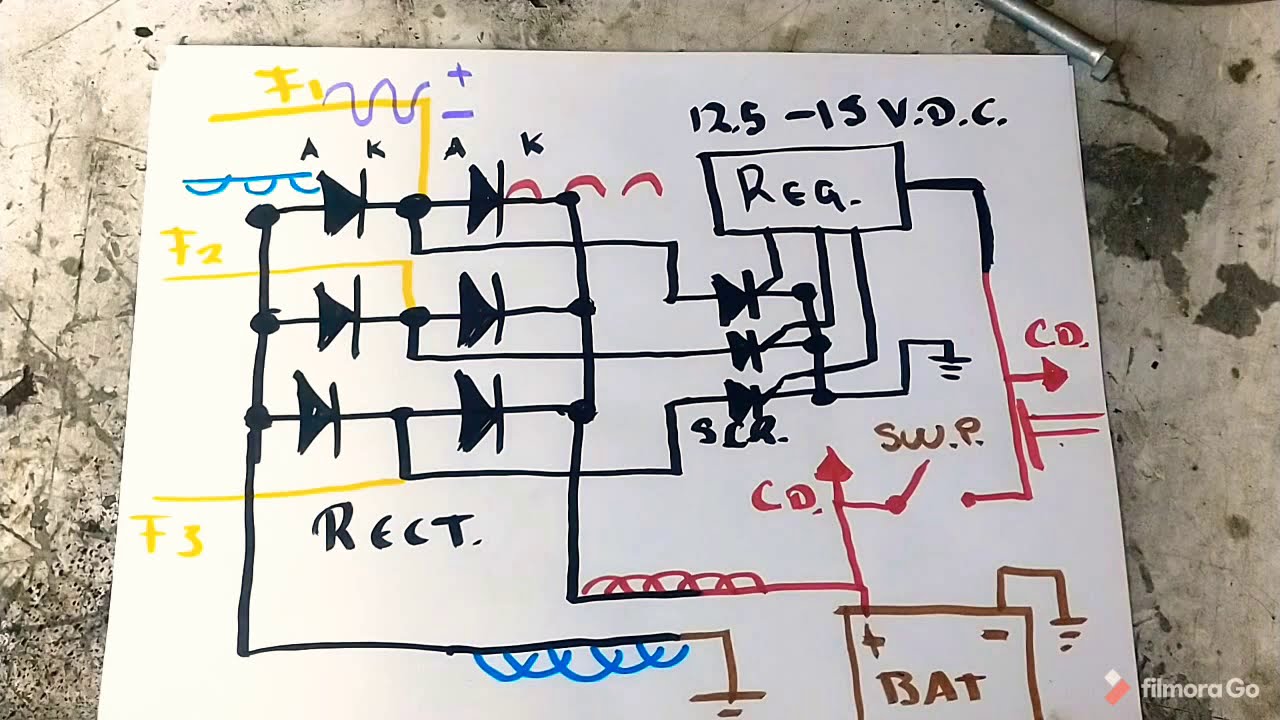 F1
+
-
A K A K
12.5 - 15 V.D.C.
REG.
F2
CD.
SCR.
SW.P.
CD.
F3
RECT.
+ -
BAT
filmoraGo